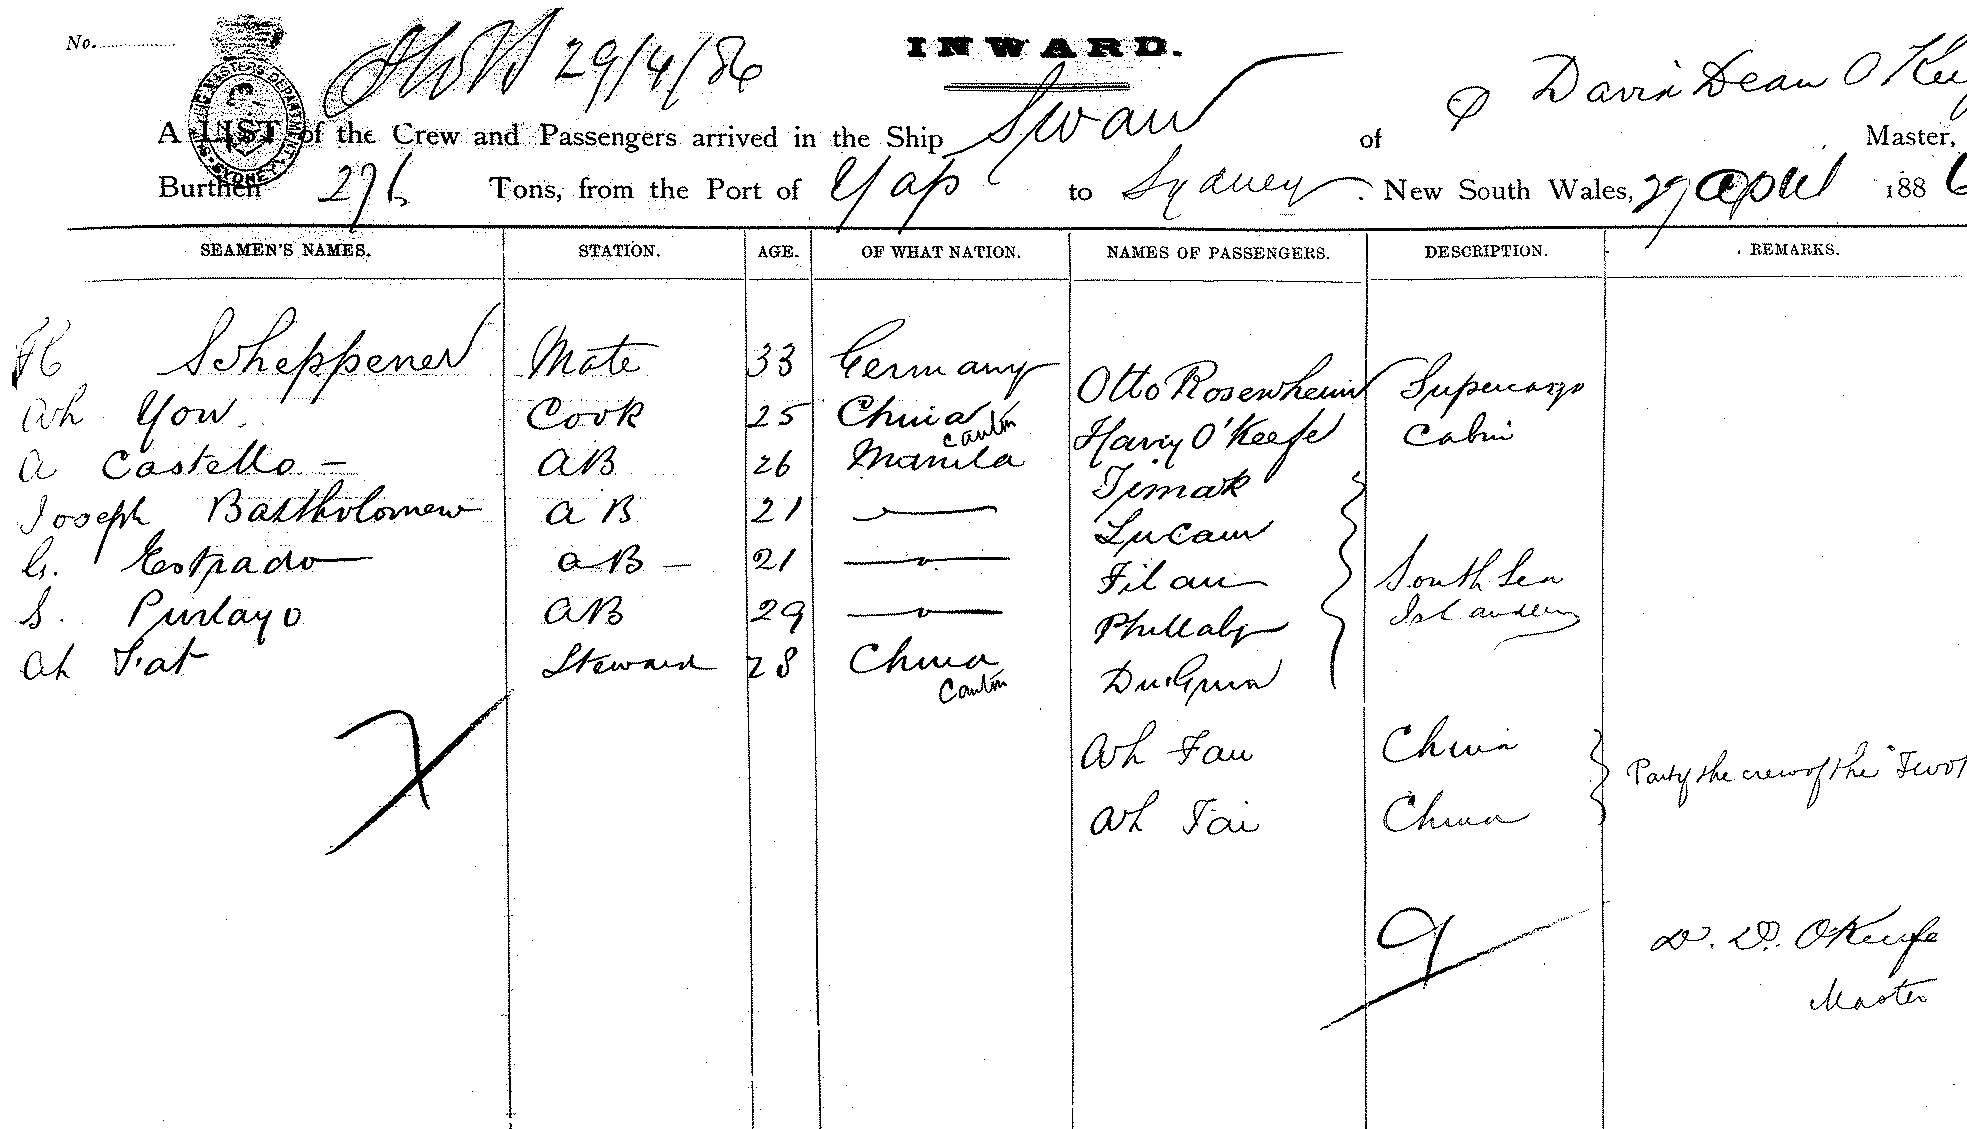 No.
29/4/86
INWARD.
David Dean O'Kee
A LIST of the Crew and Passengers arrived in the Ship Swan of Master,
Burthen 276 Tons, from the Port of Yap to Sydney. New South Wales, 29 April 1886
SEAMEN'S NAMES. STATION. AGE. OF WHAT NATION. NAMES OF PASSENGERS. DESCRIPTION. REMARKS.
H Scheppener Mate 33 Germany Otto Rosenheim Supercargo
Ah You. Cook 25 China Canton Harry O'Keefe Cabin
A Castello – AB 26 Manila Timak
Joseph Bartholomew AB 21 — Lucam
G. Estrado AB – 21 — Filan South Sea
S. Purlayo AB 29 — Phillaby Islanders
Ah Fat Steward 28 China Canton
Ah Fau China
Part of the crew of the
Ah Tai China
7
9
D. D. O'Keefe
Master